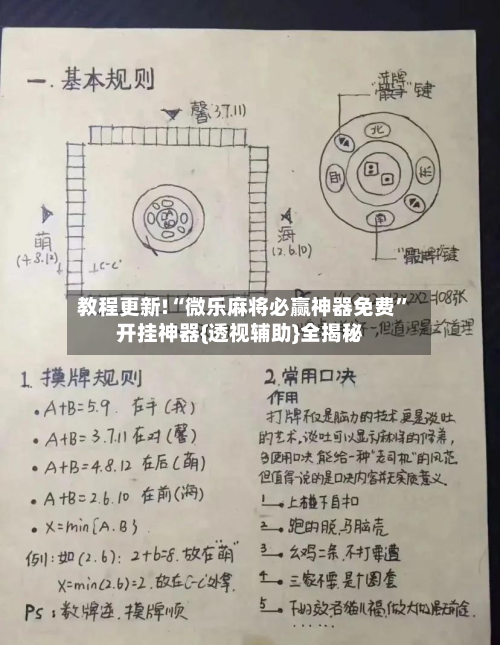 一.基本规则
馨(3.7.11)
"洗牌
骰子"键
北
萌
(4.8.12)
C-C'
海
(2.6.10)
南
"骰牌"键
PS
2X2=108张
教程更新!“微乐麻将必赢神器免费”
开挂神器{透视辅助}全揭秘
一,但道理是这个道理
1.摸牌规则
• A+B=5.9. 在于(我)
• A+B=3.7.11 在对(馨)
• A+B=4.8.12 在后(萌)
• A+B=2.6.10 在前(海)
• X=min{A.B}
例:如(2.6): 2+6=8.故在"萌"
X=min(2.6)=2.故在C-C'处拿.
Ps:数牌逆.摸牌顺
2.常用口决
作用
打牌不仅是脑力的技术更是谈吐
的艺术,谈吐可以显示麻将的修养,
口决能给一种"老司机"的风范
但值得一说的是口决内容并无实质意义.
1. 上碰下自扣
2. 跑的脱,马脑壳
3. 幺鸡二条,不打要遭
4. 三家不要,是个圈套
5.
......